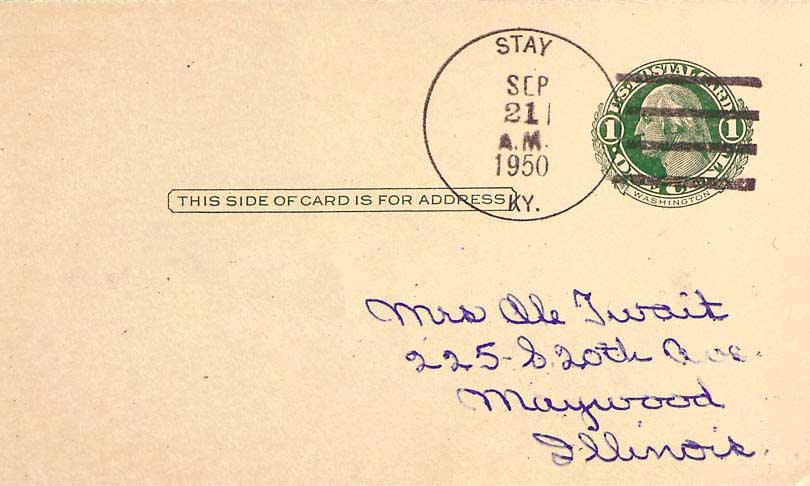 STAY
SEP
21
A.M.
1950
KY.
U.S. POSTAL CARD
1 1
WASHINGTON
THIS SIDE OF CARD IS FOR ADDRESS
Mrs Ole Twait
225-S. 20th Ave.
Maywood
Illinois.